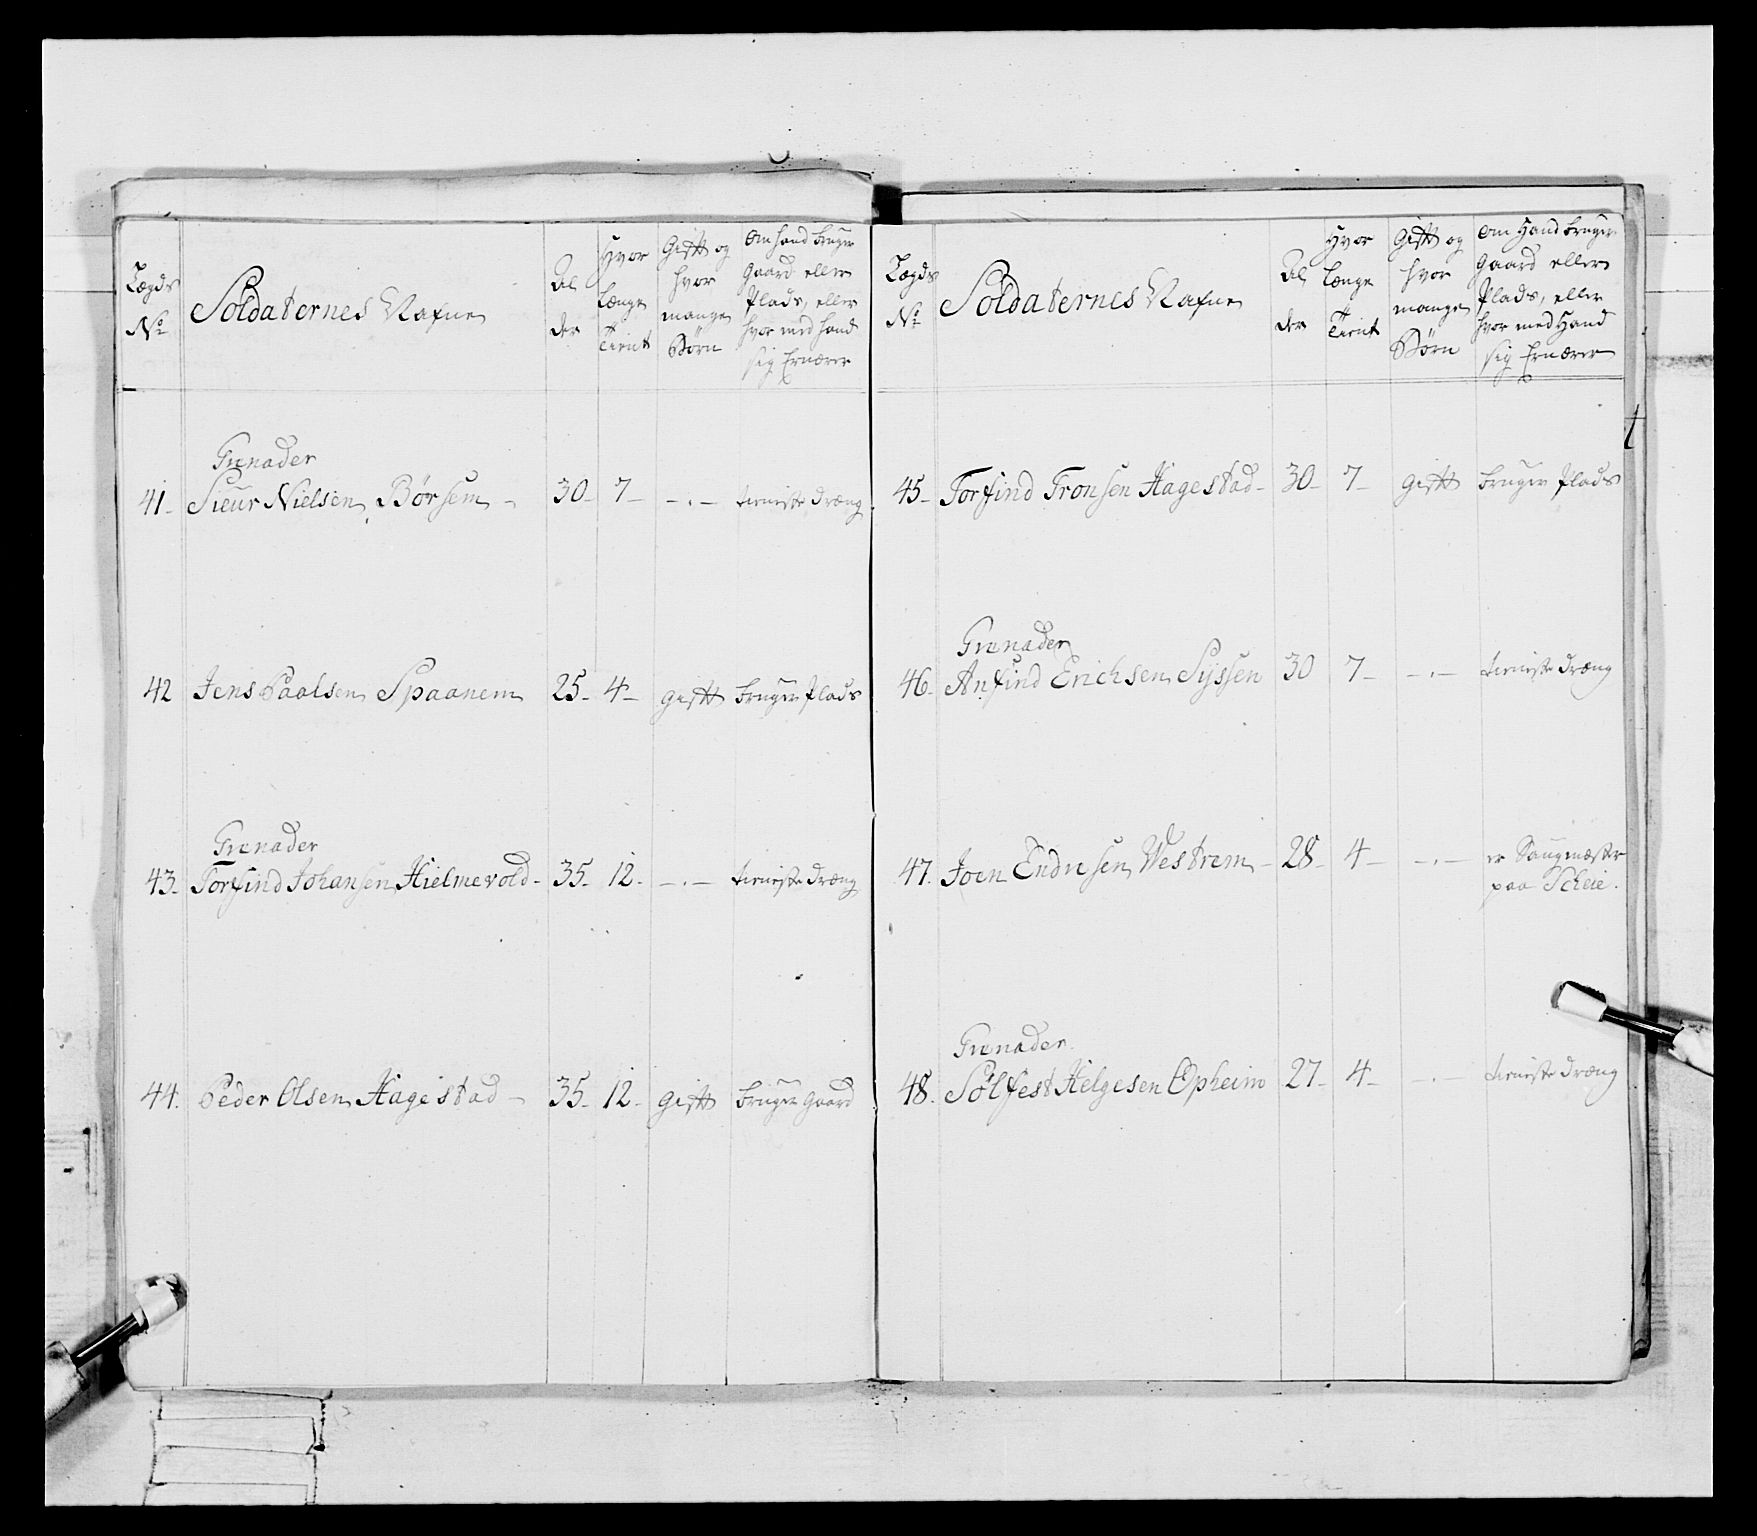 Lægds No
Soldaternes Nafne
Al der
Hvor Længe Tient
Gift og hvor mange Børn
Om hand bruger Gaard eller Plads, eller hvor med hand sig Ernærer
Grenader
41 - Sieur Nielsen Børsem - 30 - 7 - - . - tieniste dræng
42 Jens Paalsen Spaanem 25 - 4 - gift bruger Plads
Grenader
43. Torfind Johansen Hielmevold - 35. 12. - . - tieniste dræng
44. Peder Olsen Hagestad - 35 - 12 - gift bruger gaard
Lægds No
Soldaternes Nafne
Al der
Hvor Længe Tient
Gift og hvor mange Børn
Om Hand bruger Gaard eller Plads, eller hvor med Hand sig Ernærer
45 - Torfind Tronsen Hagestad - 30 - 7 - gift bruger Plads
Grenader
46 - Anfind Erichsen Syssen 30 7 - - . - tieniste dræng
47. Joen Endresen Westrem - 28 - 4 - - . - er Saugmæster
paa Scheie.
Grenader
48. Sølfest Helgesen Opheim 27 - 4 - - . - tieniste dræng